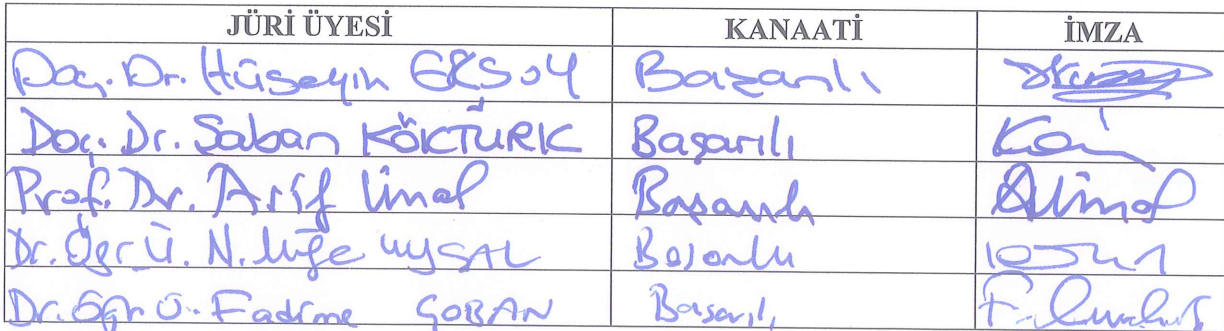 JÜRİ ÜYESİ KANAATİ İMZA
Doç. Dr. Hüseyin ERSOY Başarılı
Doç. Dr. Şaban KÖKTÜRK Başarılı
Prof. Dr. Arif Ünal Başarılı
Dr. Öğr Ü. N. Müge UYSAL Başarılı
Dr. Öğr Ü. Fadime ÇOBAN Başarılı